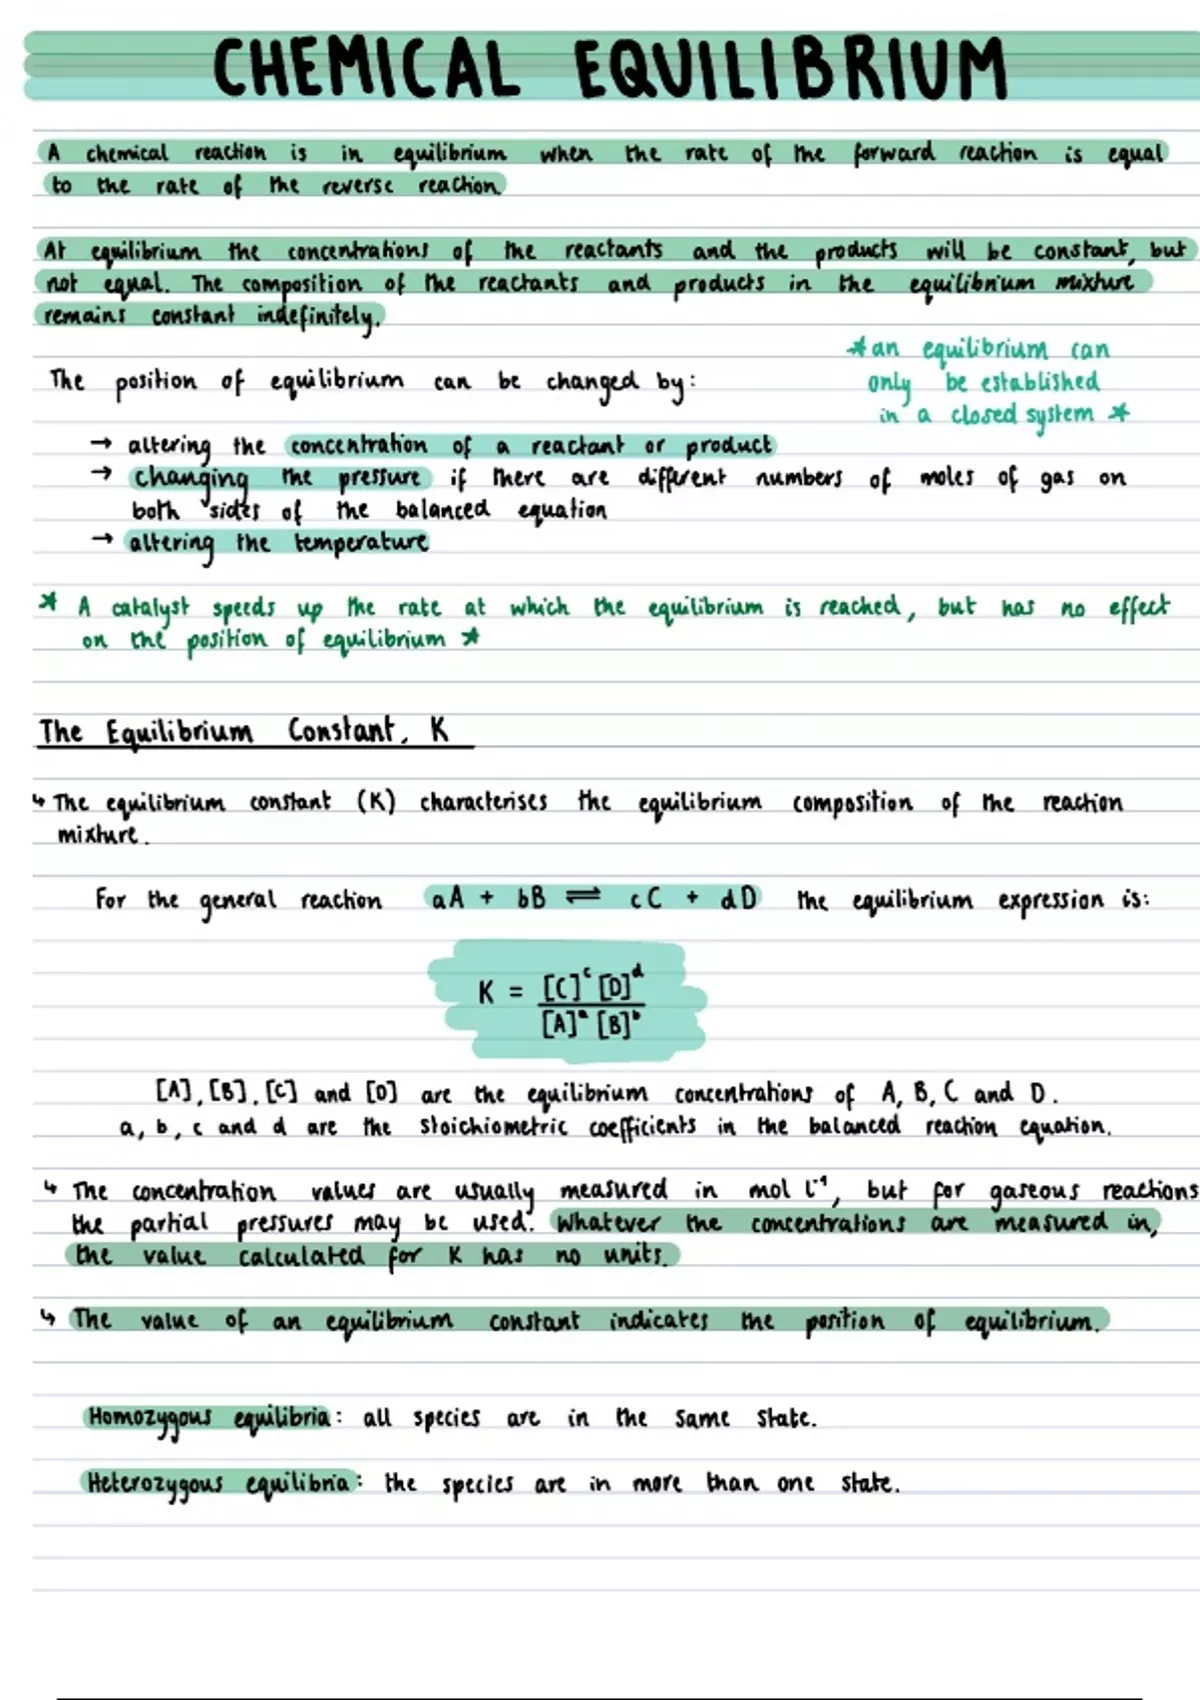 CHEMICAL EQUILIBRIUM
A chemical reaction is in equilibrium when the rate of the forward reaction is equal
to the rate of the reverse reaction.
At equilibrium the concentrations of the reactants and the products will be constant, but
not equal. The composition of the reactants and products in the equilibrium mixture
remains constant indefinitely.
*an equilibrium can
only be established
in a closed system *
The position of equilibrium can be changed by:
→ altering the concentration of a reactant or product
→ changing the pressure if there are different numbers of moles of gas on
both sides of the balanced equation
→ altering the temperature
* A catalyst speeds up the rate at which the equilibrium is reached, but has no effect
on the position of equilibrium *
The Equilibrium Constant, K
↳ The equilibrium constant (K) characterises the equilibrium composition of the reaction
mixture.
For the general reaction aA + bB ⇌ cC + dD the equilibrium expression is:
K = [C]ᶜ [D]ᵈ
[A]ᵃ [B]ᵇ
[A], [B], [C] and [D] are the equilibrium concentrations of A, B, C and D.
a, b, c and d are the stoichiometric coefficients in the balanced reaction equation.
↳ The concentration values are usually measured in mol l⁻¹, but for gaseous reactions
the partial pressures may be used. Whatever the concentrations are measured in,
the value calculated for K has no units.
↳ The value of an equilibrium constant indicates the position of equilibrium.
Homozygous equilibria: all species are in the same state.
Heterozygous equilibria: the species are in more than one state.